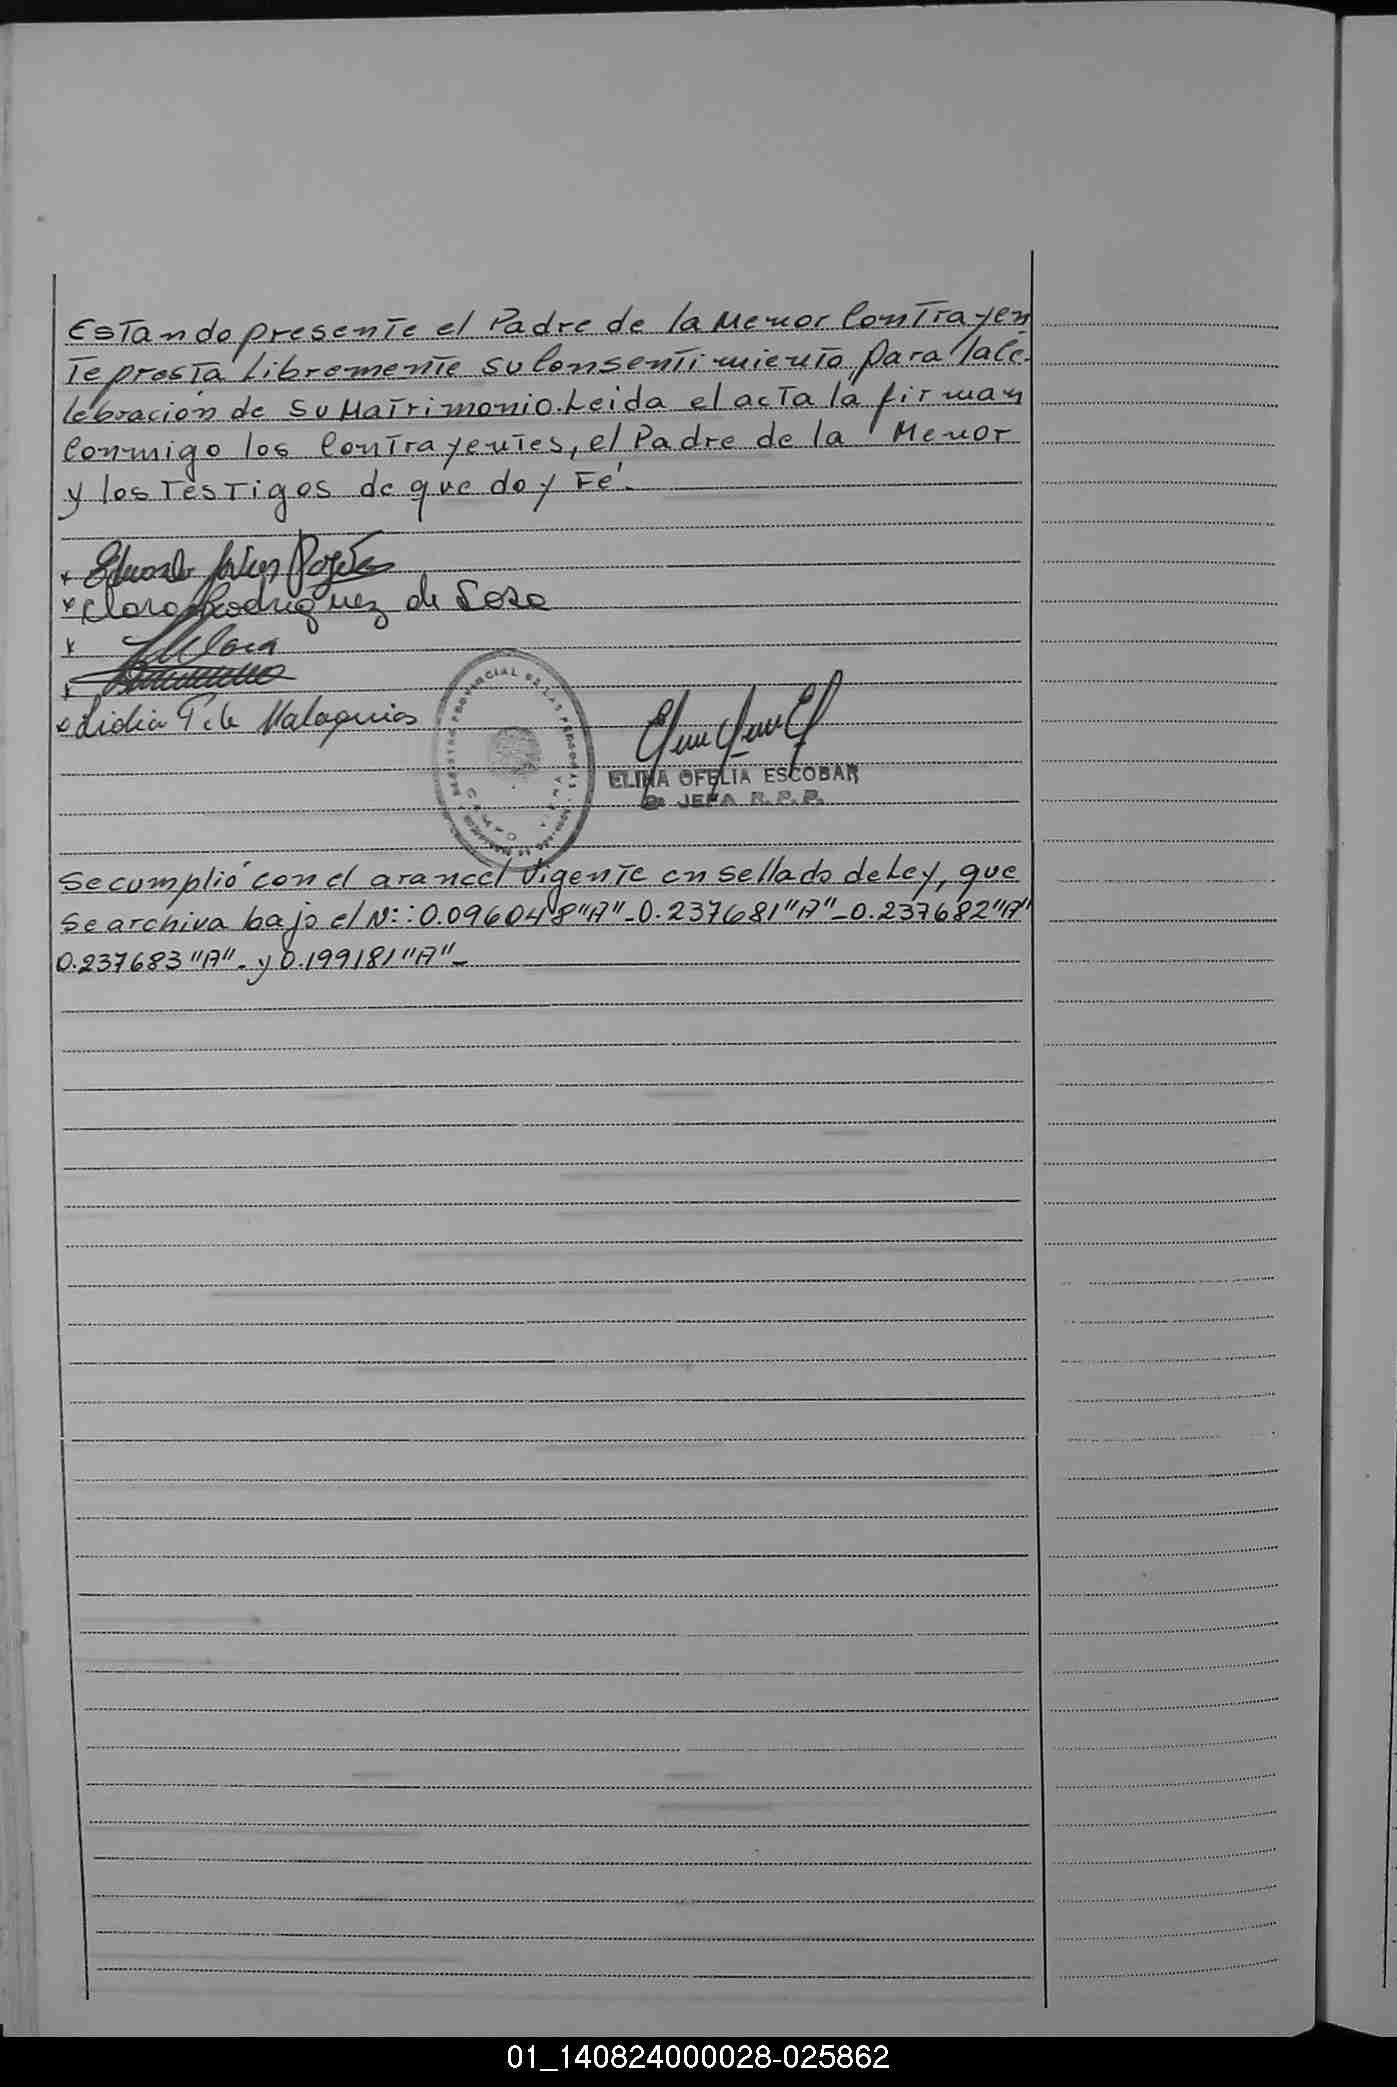 Estando presente el Padre de la Menor Contrayen
Te presta Libremente su Consentimiento para la Ce-
lebración de su Matrimonio. Leida el acta la firman
Conmigo los Contrayentes, el Padre de la Menor
y los Testigos de que doy Fé.
Clara Rodriguez de Sosa
Lidia de Malaquias
REGISTRO PROVINCIAL DE LAS PERSONAS
ELINA OFELIA ESCOBAR
JEFA R.P.P.
Se cumplió con el arancel vigente en sellado de Ley, que
se archiva bajo el N°: 0.096048 "A" - 0.237681 "A" - 0.237682 "A"
0.237683 "A" - y 0.199181 "A" -
01_140824000028-025862